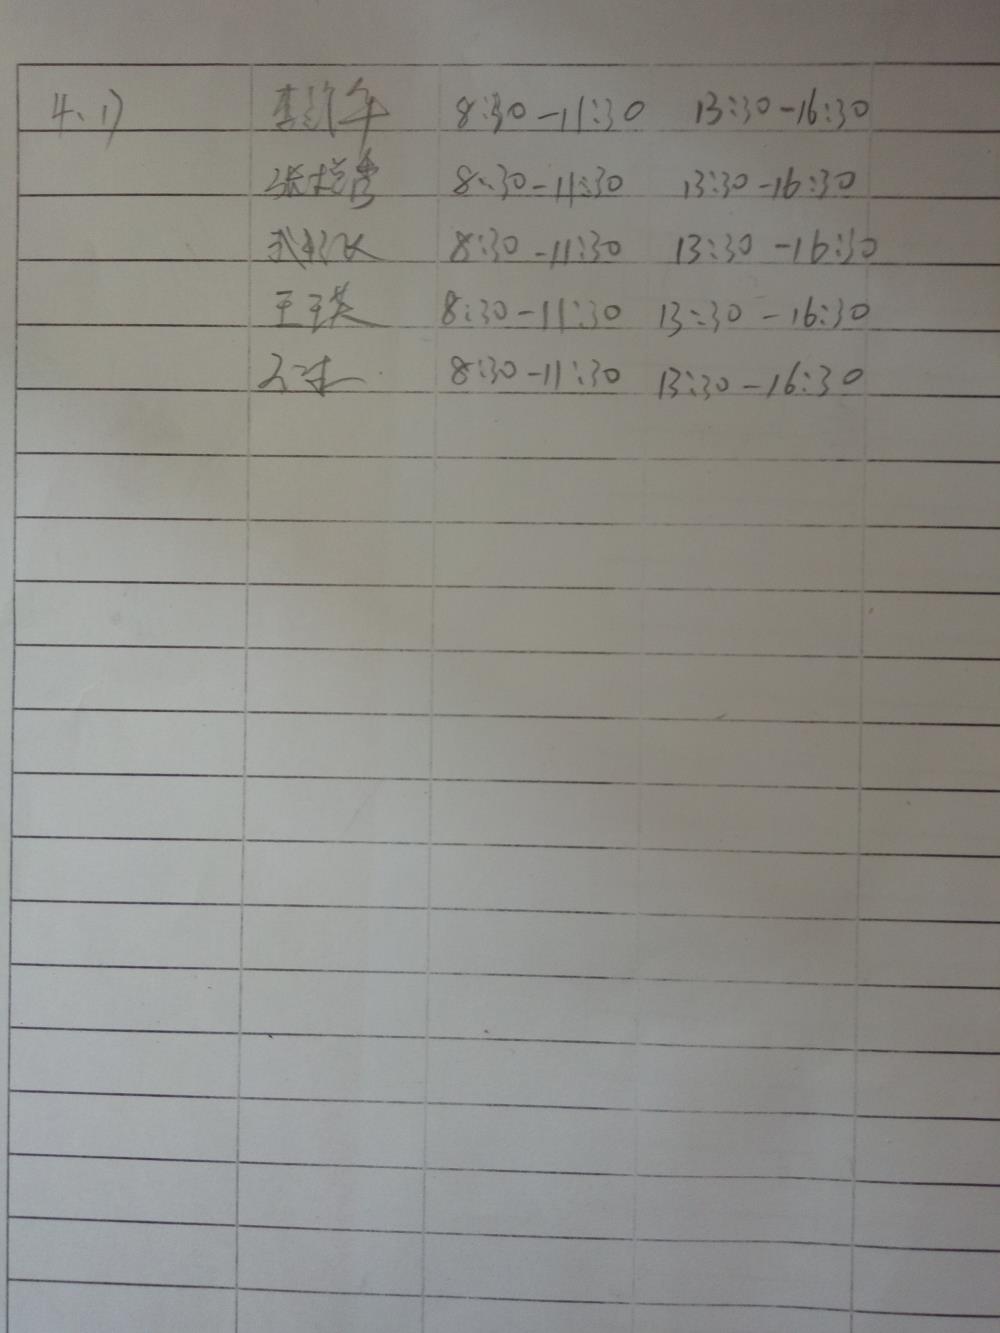 4.1) 李 年 8:30-11:30 13:30-16:30
张 8:30-11:30 13:30-16:30
8:30-11:30 13:30-16:30
王玉英 8:30-11:30 13:30-16:30
8:30-11:30 13:30-16:30